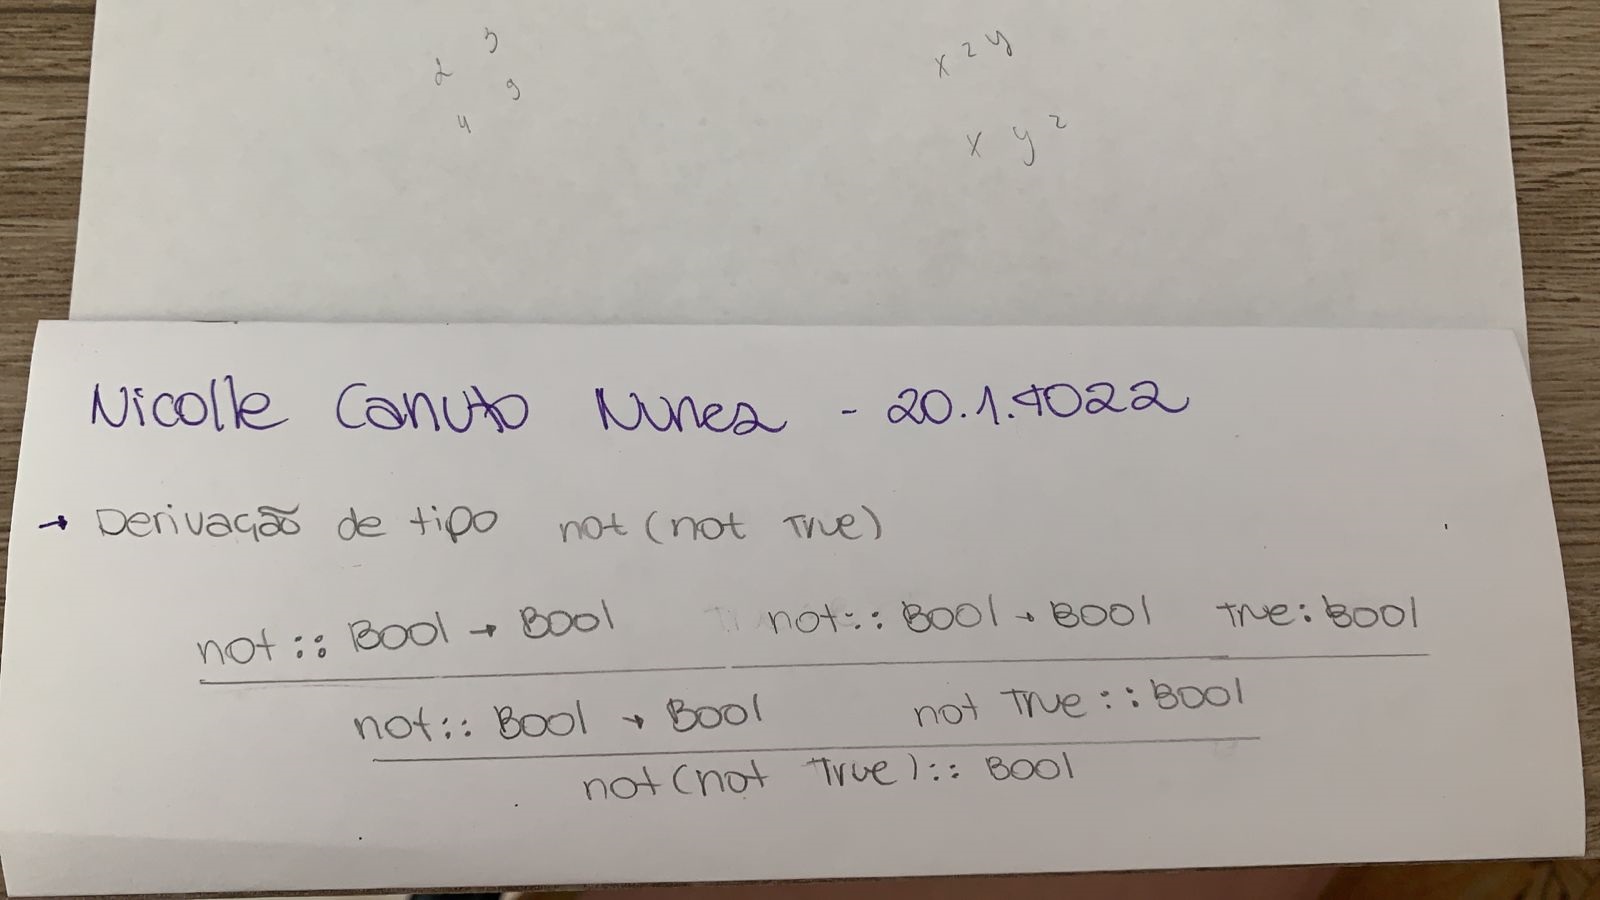 3
2
9
4
x z y
x y z
Nicolle Canuto Nunes - 20.1.4022
→ Derivação de tipo not (not True)
not :: Bool → Bool not :: Bool → Bool True : Bool
not :: Bool → Bool not True :: Bool
not (not True) :: Bool